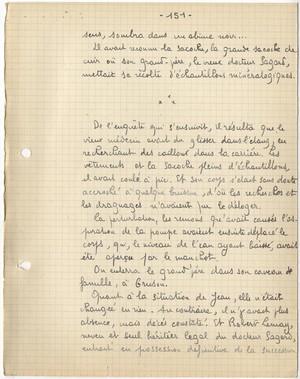 - 151 -
sens, sombra dans un abîme noir...
Il avait reconnu la sacoche, la grande sacoche de
cuir où son grand-père, le vieux docteur Sagard,
mettait sa récolte d'échantillons minéralogiques.
* * *
De l'enquête qui s'ensuivit, il résulta que le
vieux médecin avait dû glisser dans l'étang, en
recherchant des cailloux dans la carrière. Ses
vêtements et la sacoche pleins d'échantillons,
il avait coulé à pic. Et son corps s'était sans doute
accroché à quelque buisson, d'où les recherches et
les draguages n'avaient pu le déloger.
La perturbation, les remous qu'avait causés l'as-
piration de la pompe avaient ensuite déplacé le
corps, qui, le niveau de l'eau ayant baissé, avait
été aperçu par le manchot.
On enterra le grand-père dans son caveau de
famille, à
Quant à la situation de Jean, elle n'était
changée en rien. Au contraire, il n'y avait plus
absence, mais décès constaté. Et Robert
neveu et seul héritier légal du docteur Sagard,
entrait en possession définitive de la succession